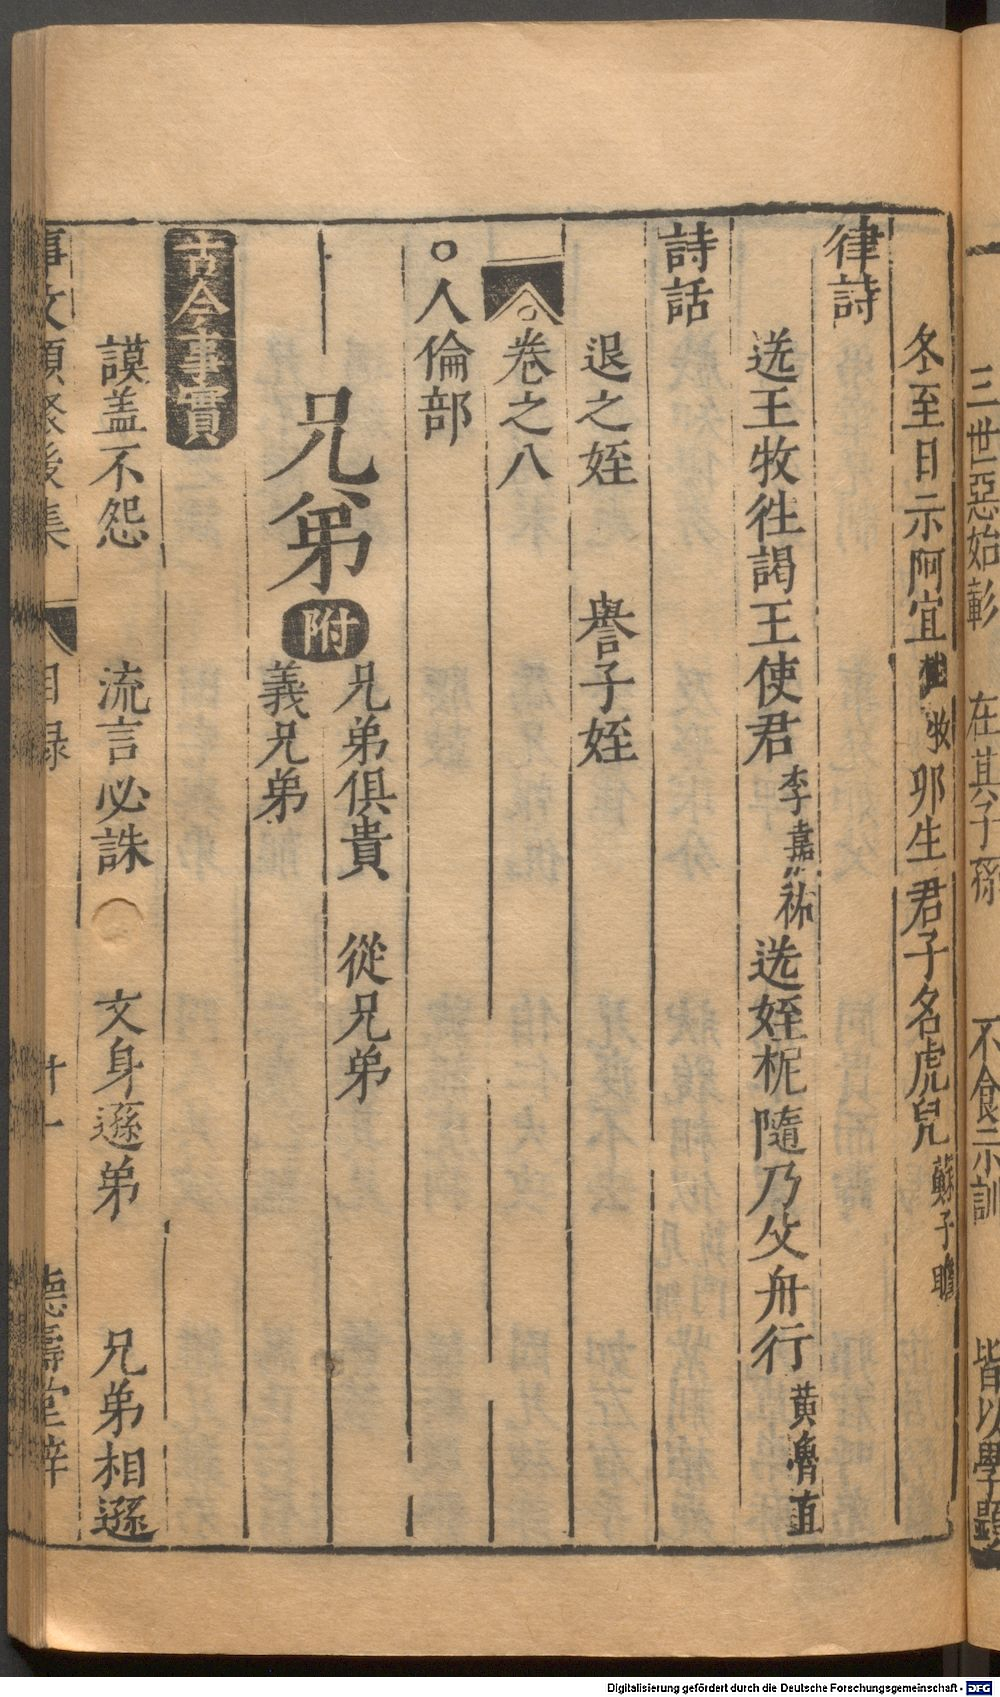 三世惡始彰 在其子孫 不食示訓 皆以學顯
冬至日示阿宜 杜牧 邜生君子名虎兒 蘇子瞻
律詩
送王牧徃謁王使君 李嘉祐 送姪柅隨乃父舟行 黄魯直
詩話
退之姪 譽子姪
○卷之八
○人倫部
兄弟 附 兄弟俱貴 從兄弟
義兄弟
古今事實
謨盖不怨 流言必誅 ○ 文身遜弟 兄弟相遜
事文類聚後集 目録 廿一 德壽堂梓
Digitalisierung gefördert durch die Deutsche Forschungsgemeinschaft - DFG